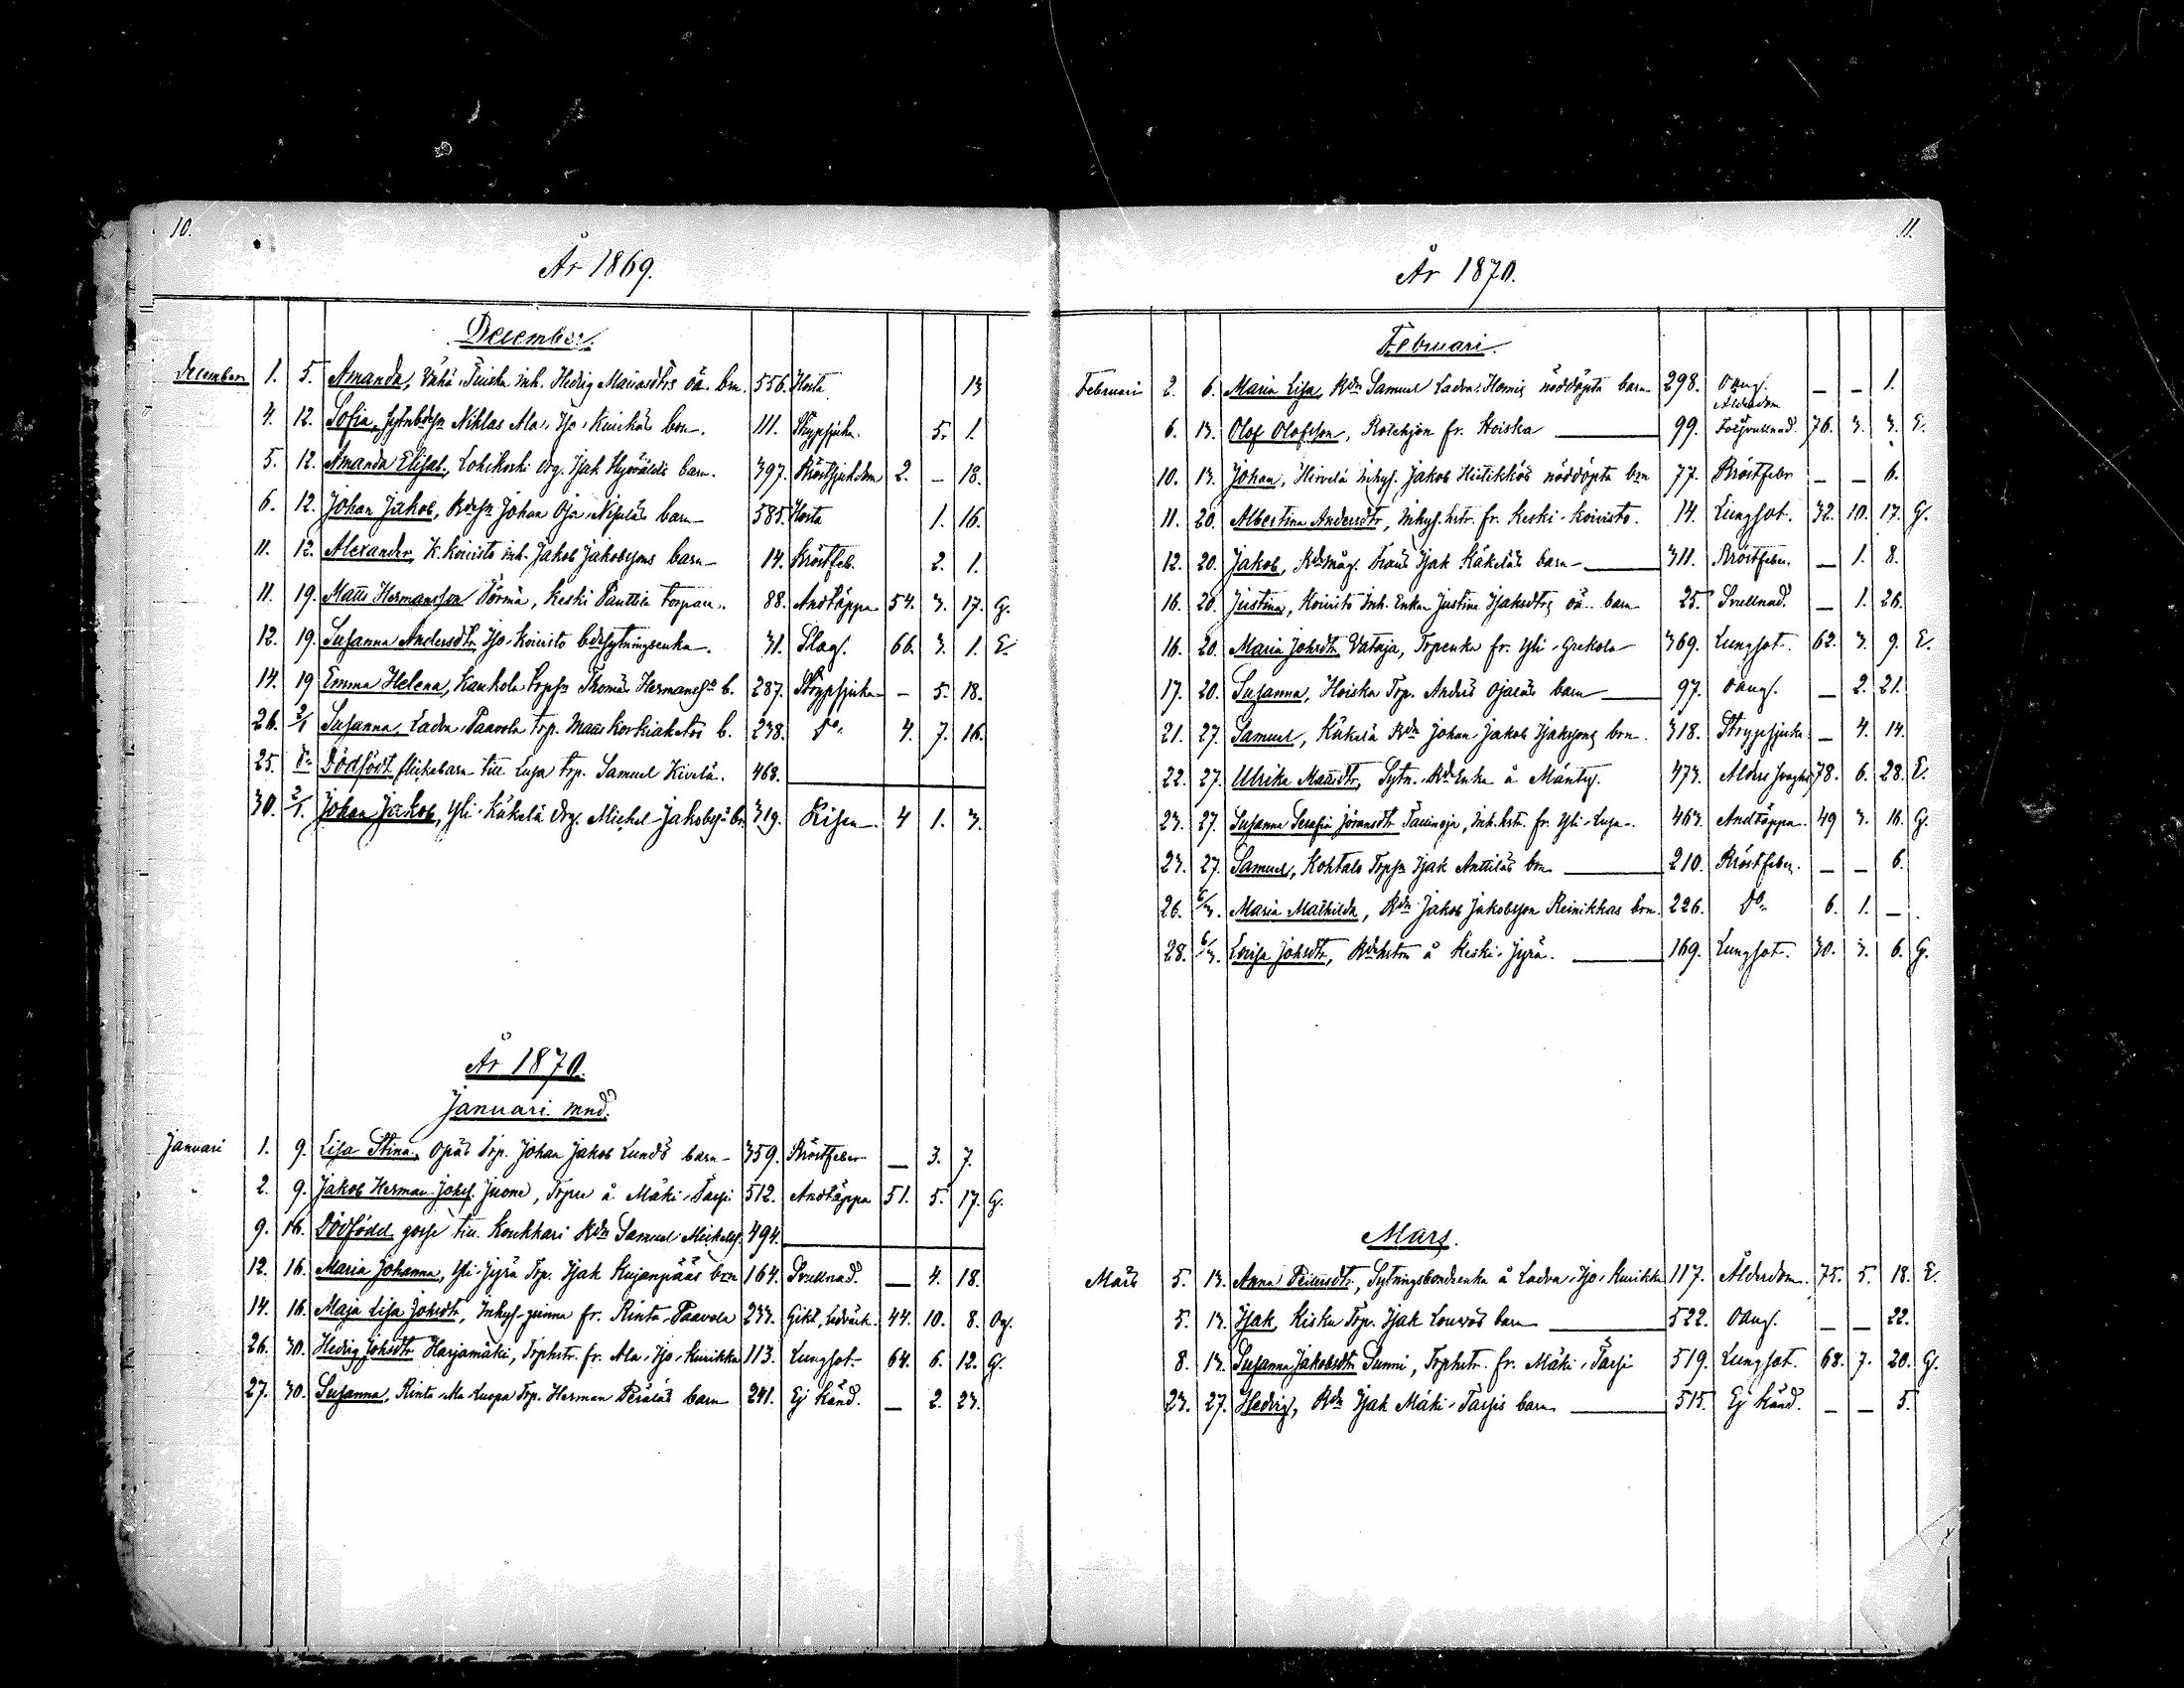 10.
År 1869.
December.
December 1. 5. Amanda, Vähä Tuisku inh. Hedvig Mariasdtrs öä. brn. 556. Hosta 13
4. 12. Sofia, Niklas Ala, Ijo, Kuickäs brn. 111. Strypsjuka. 5. 1.
5. 12. Amanda Elisab., Lohikoski drg. Isak barn. 397. Bröstsjukdom 2. – 18.
6. 12. Johan Jakob, Johan Oja barn 585. Hosta 1. 16.
11. 12. Alexander, K. Koivisto inh. Jakob Jakobssons barn 14. Bröstfeb. 2. 1.
11. 19. Matts Hermansson Törmä, Keski Panttila torpare. 88. Andtäppa 54. 3. 17. G.
12. 19. Susanna Andersdtr Ijo-Koivisto bdesytningsenka. 31. Slag. 66. 3. 1. E.
14. 19 Emma Helena, Kankola torpsn Thomas Hermanss b. 287. Strypsjuka – 5. 18.
26. 2/1 Susanna, Ladva-Paavola trp. Matts Korkiakotos b. 238. Do. 4. 7. 16.
25. Do Dödfödt flickebarn till Luja trp. Samuel Kivelä. 468.
30. 2/1. Johan Jakob, Yli-Käkelä drg. Michel Jakobss br. 319. Risen 4 1. 3.
År 1870.
Januari mnd.
Januari 1. 9. Lisa Stina, Opas trp. Johan Jakob Lunds barn 359. Bröstfeber – 3. 7.
2. 9. Jakob Herman Johss. Juone, Torpare å Mäki-Tarsi 512. Andtäppa 51. 5. 17. G.
9. 16. Dödfödd gosse till Koukkari Bdn Samuel Michelss. 494.
12. 16. Maria Johanna, Yli-Jyrä Trp. Isak Kujanpääs brn 164. Svullnad. – 4. 18.
14. 16. Maja Lisa Johsdtr, Inhys-qvinna fr. Rinta-Paavola 233. Gikt, Ledvärk. 44. 10. 8. Og.
26. 30. Hedvig Johsdtr Harjamäki, Trphstr. fr. Ala-Ijo-Kurikka 113. Lungsot 64. 6. 12. G.
27. 30. Susanna, Rinta-Ala-Luopa Trp. Herman Peräläs barn 241. Ej känd. – 2. 23.
11.
År 1870.
Februari.
Februari 2. 6. Maria Lisa, Bdn Samuel Ladva-Homis nöddöpta barn 298. oang. – – 1.
6. 13. Olof Olofsson, Rotehjon fr. Koiska 99. Ålderdom Förswullnad. 76. 3. 3. E.
10. 13. Johan, Hirvelä inhys. Jakob Hietikkos nöddöpta brn 77. Bröstfeber – – 6.
11. 20. Albertina Andersdtr, inhys. hstr. fr. Keski-Koivisto. 14. Lungsot. 32. 10. 17. G.
12. 20. Jakob, Bdmåg. Frans Isak Käkeläs barn 311. Bröstfeber. – 1. 8.
16. 20. Justina, Koivisto Inh. Enkan Justina Isaksdtrs öä. barn 25. Svullnad. – 1. 26.
16. 20. Maria Johsdtr Vataja, Torpenka fr. Yli-Grekola 369. Lungsot. 62. 3. 9. E.
17. 20. Susanna, Hoiska Trp. Anders Ojaläs barn 97. oang. – 2. 21.
21. 27. Samuel, Käkelä Bdn Johan Jakob Isakssons brn. 318. Strypsjuka – 4. 14.
22. 27. Ulrika Mattsdtr, Sytn. Bdenka å Mänty. 473. Alders svaghet 78. 6. 28. E.
23. 27. Susanna Serafia Göransdtr Tauinoja, Inh. hstr. fr. Yli-Luja. 463. Andtäppa. 49 3. 16. G.
23. 27. Samuel, Kohtalo Trpsn Isak Anttiläs brn 210. Bröstfeber. – – 6.
26. 6/3. Maria Mathilda, Bdn Jakob Jakobsson Reinikkas brn. 226. Do. 6. 1. –
28. 6/3. Lovisa Johsdtr, Bdehstru å Keski-Jyrä. 169. Lungsot. 30. 3. 6. G.
Mars.
Mars 5. 13. Anna Petersdtr, Sytningsbondeenka å Ladva-Ijo-Kurikka 117. Ålderdom. 75. 5. 18. E.
5. 13. Isak, Kisku Trp. Isak Louvos barn 522. oang. – – 22.
8. 13. Susanna Jakobsdtr Sunni, Trphstr. fr. Mäki-Tarsi 519. Lungsot. 68. 7. 20. G.
23. 27. Hedvig, Bdn Isak Mäki-Tarsis barn 515. Ej känd. – – 5.